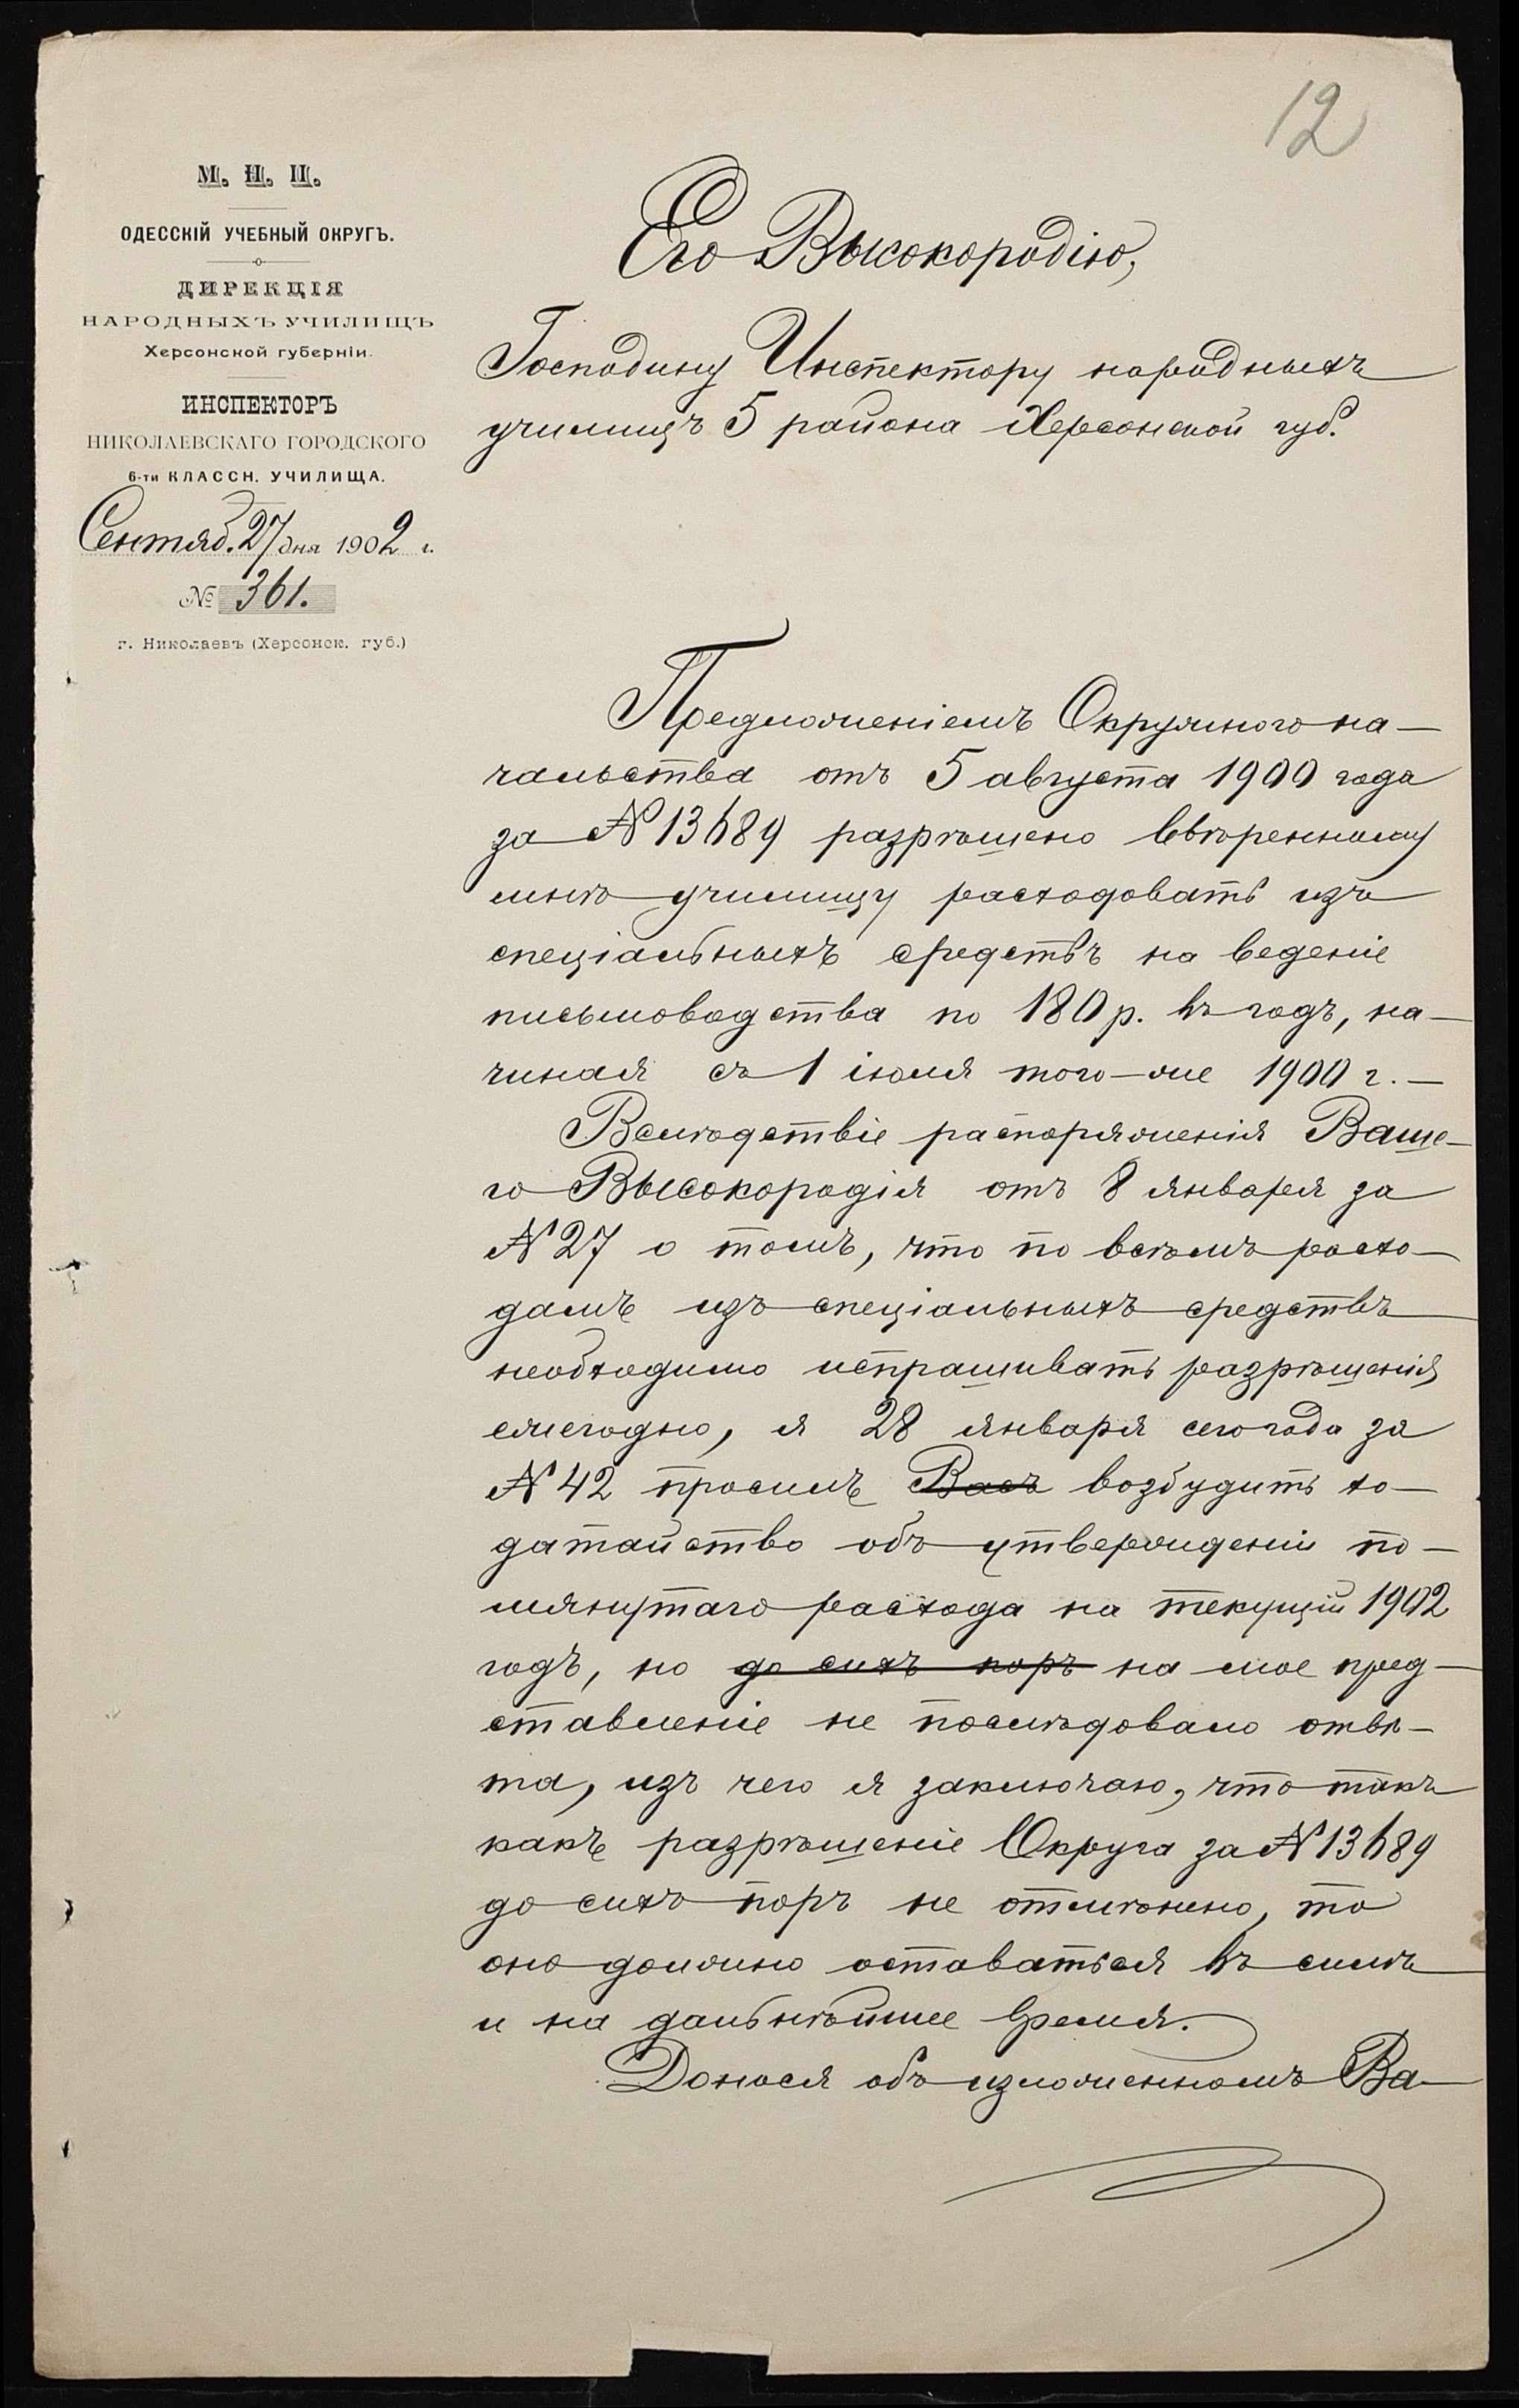 12
М. Н. П.
ОДЕССКІЙ УЧЕБНЫЙ ОКРУГЪ.
ДИРЕКЦІЯ
НАРОДНЫХЪ УЧИЛИЩЪ
Херсонской губерніи.
ИНСПЕКТОРЪ
НИКОЛАЕВСКАГО ГОРОДСКОГО
6-ти КЛАССН. УЧИЛИЩА.
Сентяб. 27 дня 1902 г.
№ 361.
г. Николаевъ (Херсонск. губ.)
Его Высокородію,
Господину Инспектору народныхъ
училищъ 5 района Херсонской губ.
Предложеніемъ Окружного на-
чальства отъ 5 августа 1900 года
за № 13689 разрѣшено ввѣренному
мнѣ училищу расходовать изъ
спеціальныхъ средствъ на веденіе
письмоводства по 180 р. въ годъ, на-
чиная съ 1 іюля того-же 1900 г.-
Вслѣдствіе распоряженія Ваше-
го Высокородія отъ 8 января за
№ 27 о томъ, что по всѣмъ расхо-
дамъ изъ спеціальныхъ средствъ
необходимо испрашивать разрѣшенія
ежегодно, я 28 января сего года за
№ 42 просилъ Васъ возбудить хо-
датайство объ утвержденіи по-
мянутаго расхода на текущій 1902
годъ, но до сихъ поръ на мое пред-
ставленіе не послѣдовало отвѣ-
та, изъ чего я заключаю, что такъ
какъ разрѣшеніе Округа за № 13689
до сихъ поръ не отмѣнено, то
оно должно оставаться въ силѣ
и на дальнѣйшее время.
Донося объ изложенномъ Ва-